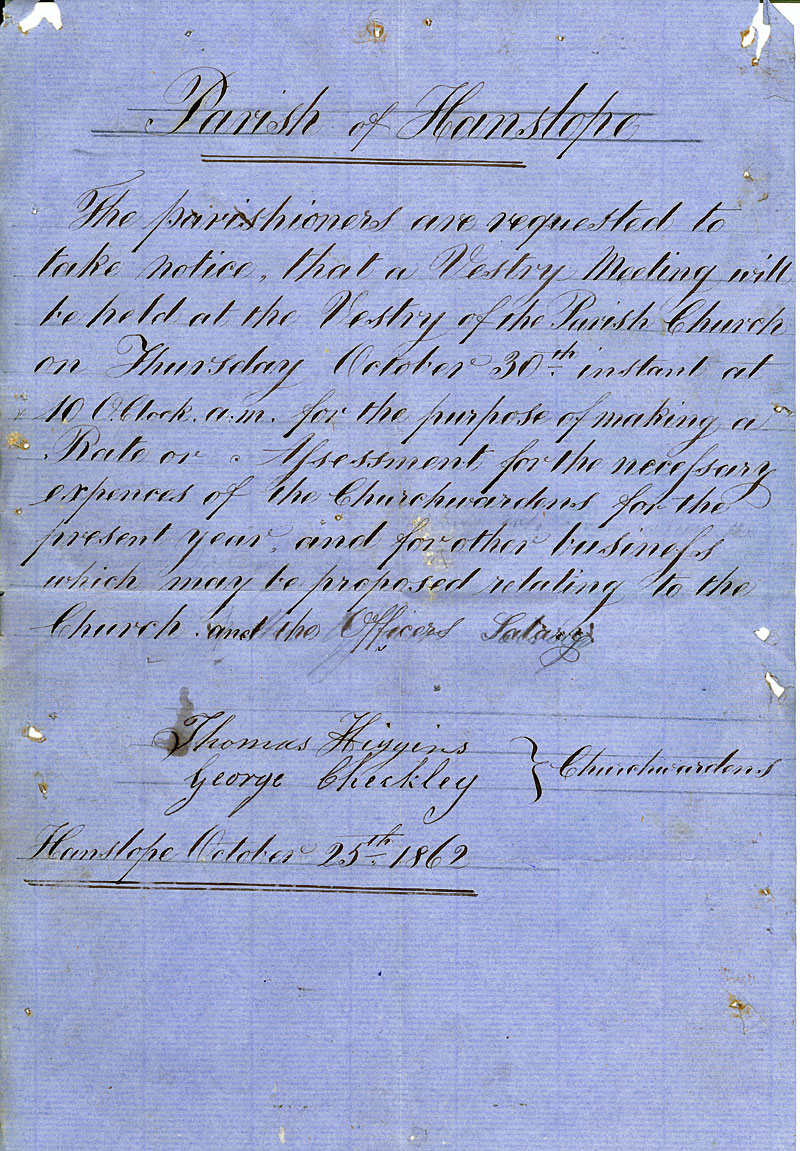 Parish of Hanslope
The parishioners are requested to
take notice, that a Vestry Meeting will
be held at the Vestry of the Parish Church
on Thursday October 30th instant at
10 O'Clock. a.m. for the purpose of making a
Rate or Assessment for the necessary
expences of the Churchwardens for the
present year, and for other business
which may be proposed relating to the
Church. and the Officers Salary
Thomas Higgins
George Checkley } Churchwardens
Hanslope October 25th 1862